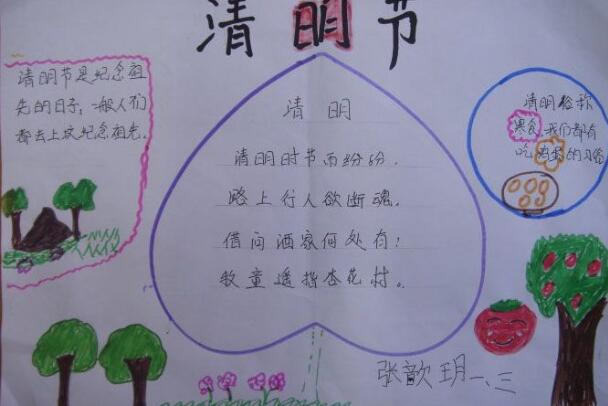 清明节
清明节是纪念祖
先的日子，一般人们
都去上坟纪念祖先。
清 明
清明时节雨纷纷，
路上行人欲断魂。
借问酒家何处有？
牧童遥指杏花村。
清明俗称
寒食，我们都有
吃鸡蛋的习俗
张歆玥 一、三